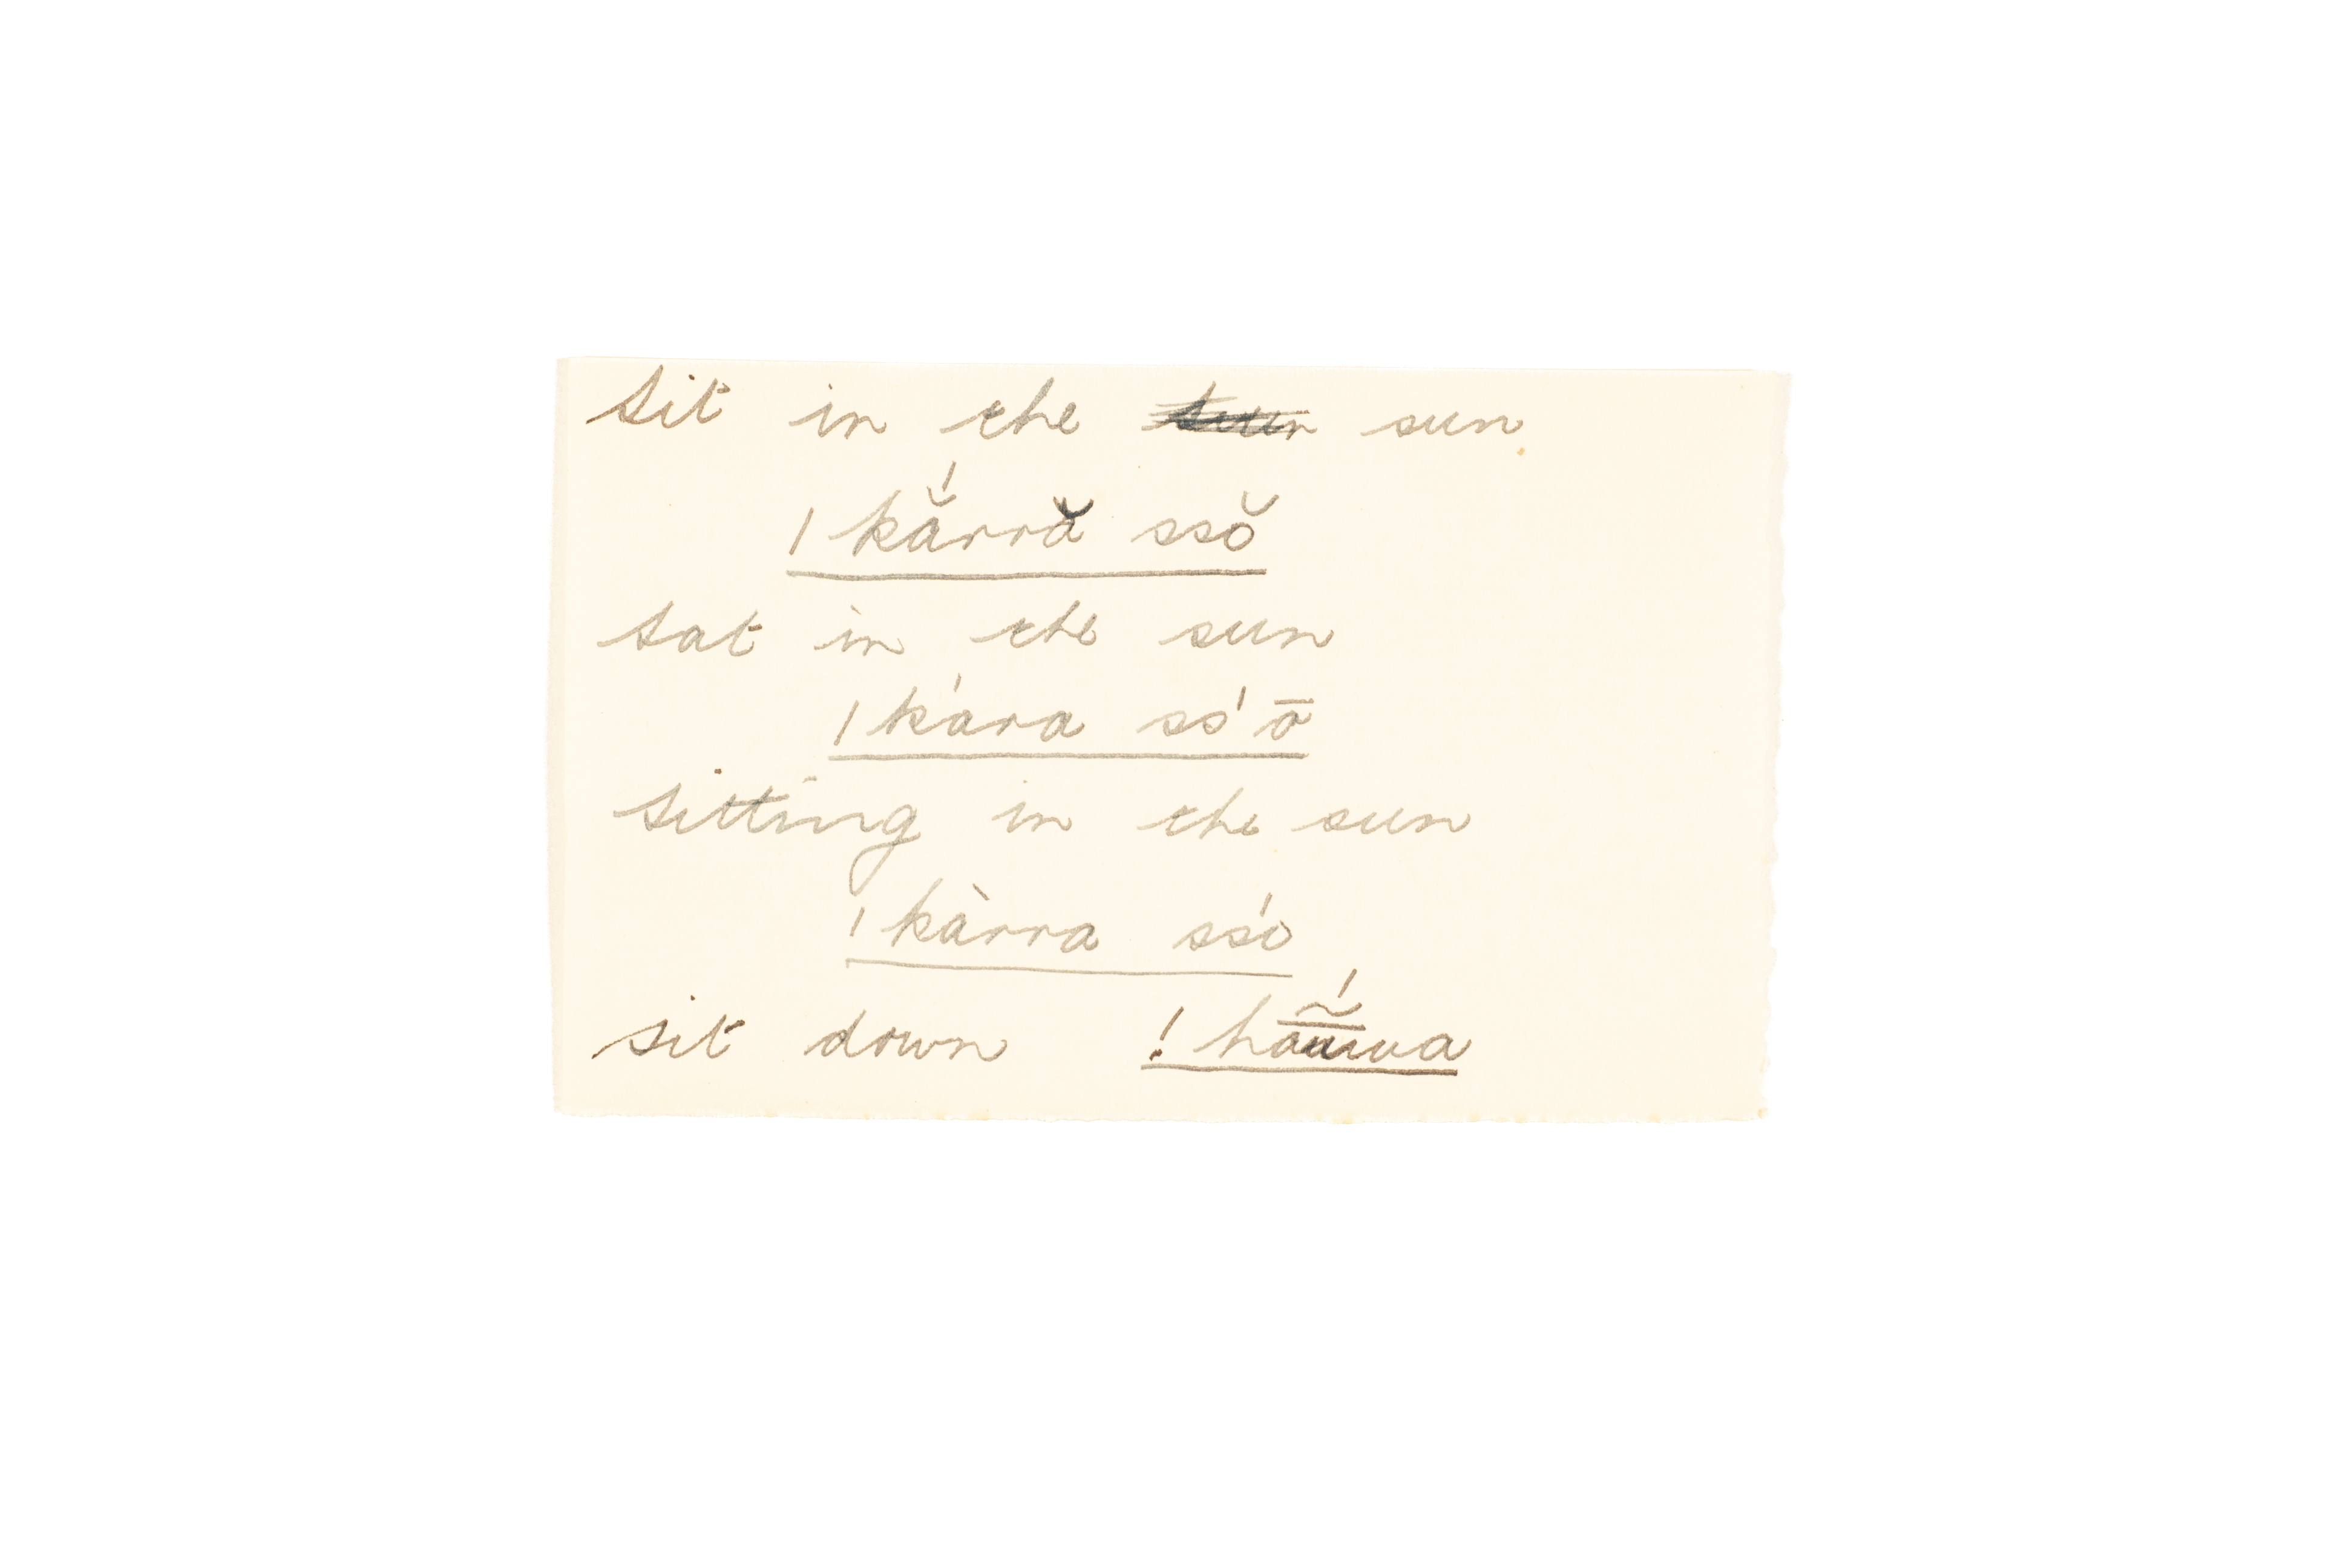 sit in the sun
ǀkắrră ssŏ
sat in the sun
ǀkára ss'ō
sitting in the sun
ǀkàrra ssó
sit down